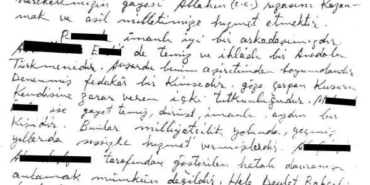 hareketimizin gayesi Allahın (c.c.) rızasını kazan-
mak ve asil milletimize hizmet etmektir.
R imanlı iyi bir arkadaşımızdır.
E de temiz ve ihlaslı bir Anadolu
Türkmenidir. aşiretinden boyumdandır
Denenmiş fedakâr bir kimsedir. göze çarpan kusuru
Kendisine zarar veren içki tutkunluğudur. M
ise gayet temiz, dürüst, imanlı aydın bir
Kişidir. Bunlar milliyetcilik yolunda, geçmiş
yıllarda hizmet vermişlerdir.
tarafından gösterilen hatalı davranışı
anlamak mümkün değildir. Hele Devlet